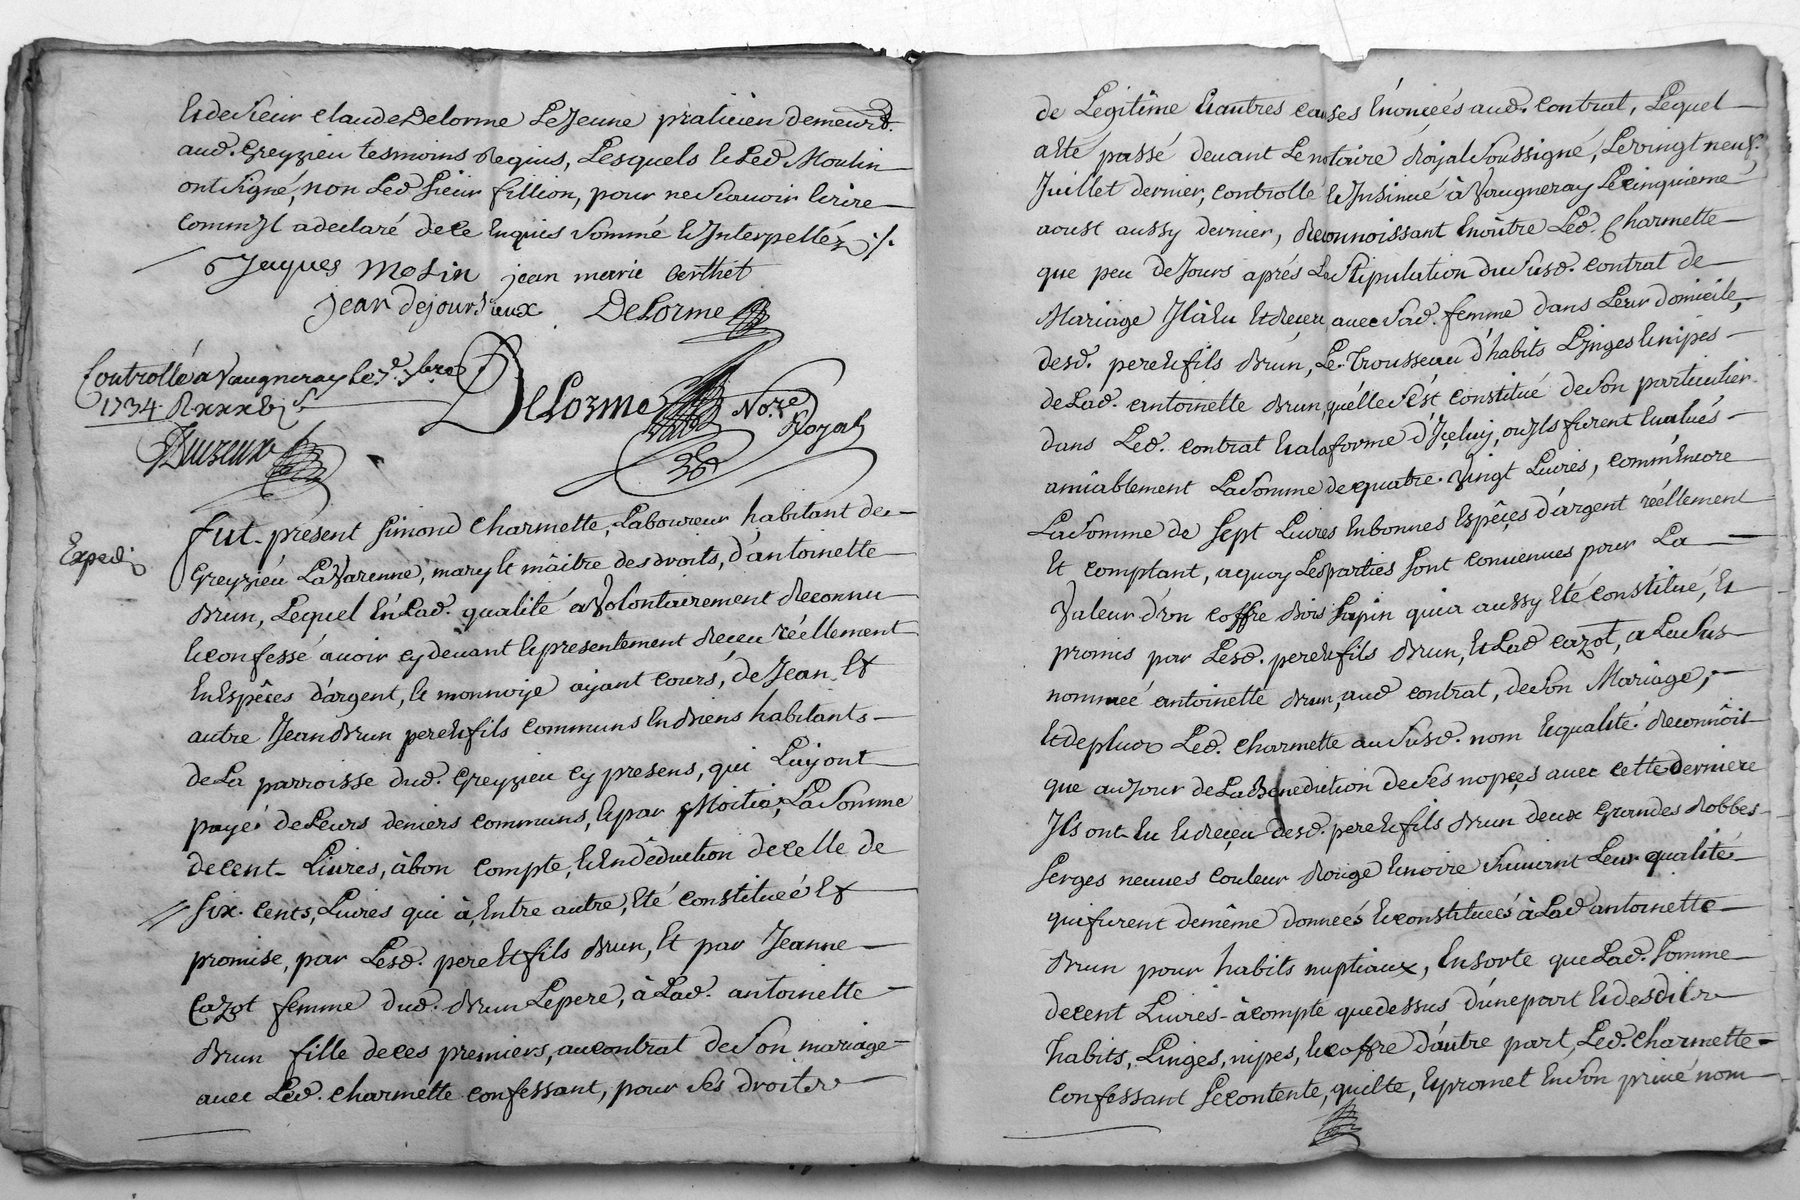 Et de Sieur Claude Delorme Le Jeune praticien demeurt.
aud. Greyzieu tesmoins Requis, Lesquels & Led Moulin
ont signé, non Led. Sieur fillion, pour ne scavoir Ecrire
comm'Jl a declaré de ce Enquis sommé & Interpellé ./.
Jaques Molin jean marie berthet
jean dejoursieux Delorme
Controllé a Vaugneray le 7e. 7bre
1734. R xxx
Delorme No.re Royal
Exped.
Fut present Simond Charmette, Laboureur habitant de
Greyziéu La Varenne, mary & mâitre des droits, d'antoinette
Brun, Lequel En Lad. qualité a Volontairement Reconnu
& confessé avoir cy devant & presentement Receu réellement
En Espêces d'argent, & monnoye ayant cours, de Jean Et
autre Jean Brun pere & fils communs En Biens habitants
de La parroisse dud. Greyzieu cy presens, qui Luy ont
payé de Leurs deniers communs, & par Moitié, La Somme
de cent Livres, à bon compte, & En dêduction de celle de
Six cents, Livres qui à, Entre autre, Eté constituée Et
promise, par Lesd. pere Et fils Brun, Et par Jeanne
Cazot femme dud. Brun Le pere, à Lad. antoinette
Brun fille de ces premiers, au contrat de Son mariage
avec Led. Charmette confessant, pour Ses droits
de Legitime & autres causes Enoncées aud. contrat, Lequel
acte passé devant Le notaire Royal Soussigné, Le vingt neuf
Juillet dernier, controllé & Insinué à Vaugneray Le cinquieme
aoust aussy dernier, Reconnoissant En oûtre Led. Charmette
que peu de Jours aprés La Stipulation du Susd. contrat de
Mariage Jl à Eu Et Receu avec Sad. femme dans Leur domicile,
desd. pere & fils Brun, Le Trousseau d'habits Linges & nipes
de Lad. antoinette Brun, qu'elle s'est constitué de Son particulier
dans Led. contrat & a la forme d'Jceluy, ou Jls furent Evalués
amiablement La Somme de quatre Vingt Livres, comm'Encore
La Somme de Sept Livres En bonnes Espêçes d'argent réellement
Et comptant, a quoy Les parties Sont convenues pour La
Valeur d'un coffre Bois Sapin qui a aussy Eté constitué, Et
promis par Lesd. pere & fils Brun, & Lad Cazot, a La Sus
nommeé antoinette Brun, aud contrat, de Son Mariage,
Et de plus Led. Charmette au Susd. nom & qualité Reconnoit
que au Jour de La Benediction de Ses nopçes avec cette derniere
Jls ont Eu & Reçeu desd. pere & fils Brun deux Grandes Robbes
Serges neuves couleur Rouge & noire Suivant Leur qualité
qui furent de même donneés & constituées à Lad antoinette
Brun pour habits nuptiaux, En Sorte que Lad. Somme
de cent Livres à compte que dessus d'une part & desdits
habits, Linges, nipes, & coffre d'autre part, Led. Charmette
Confessant Se contente, quitte, & promet En Son privé nom